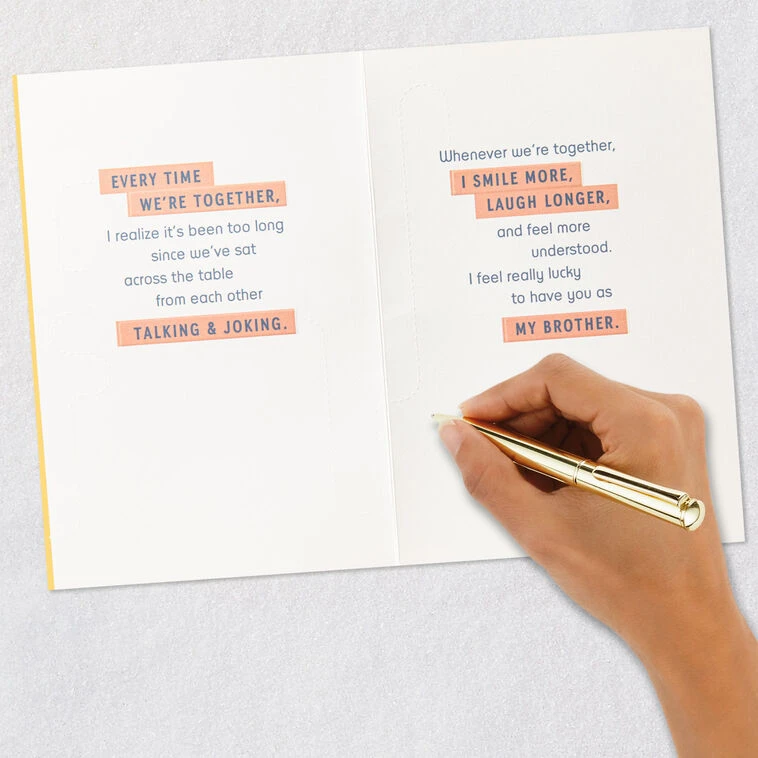 EVERY TIME
WE'RE TOGETHER,
I realize it's been too long
since we've sat
across the table
from each other
TALKING & JOKING.
Whenever we're together,
I SMILE MORE,
LAUGH LONGER,
and feel more
understood.
I feel really lucky
to have you as
MY BROTHER.